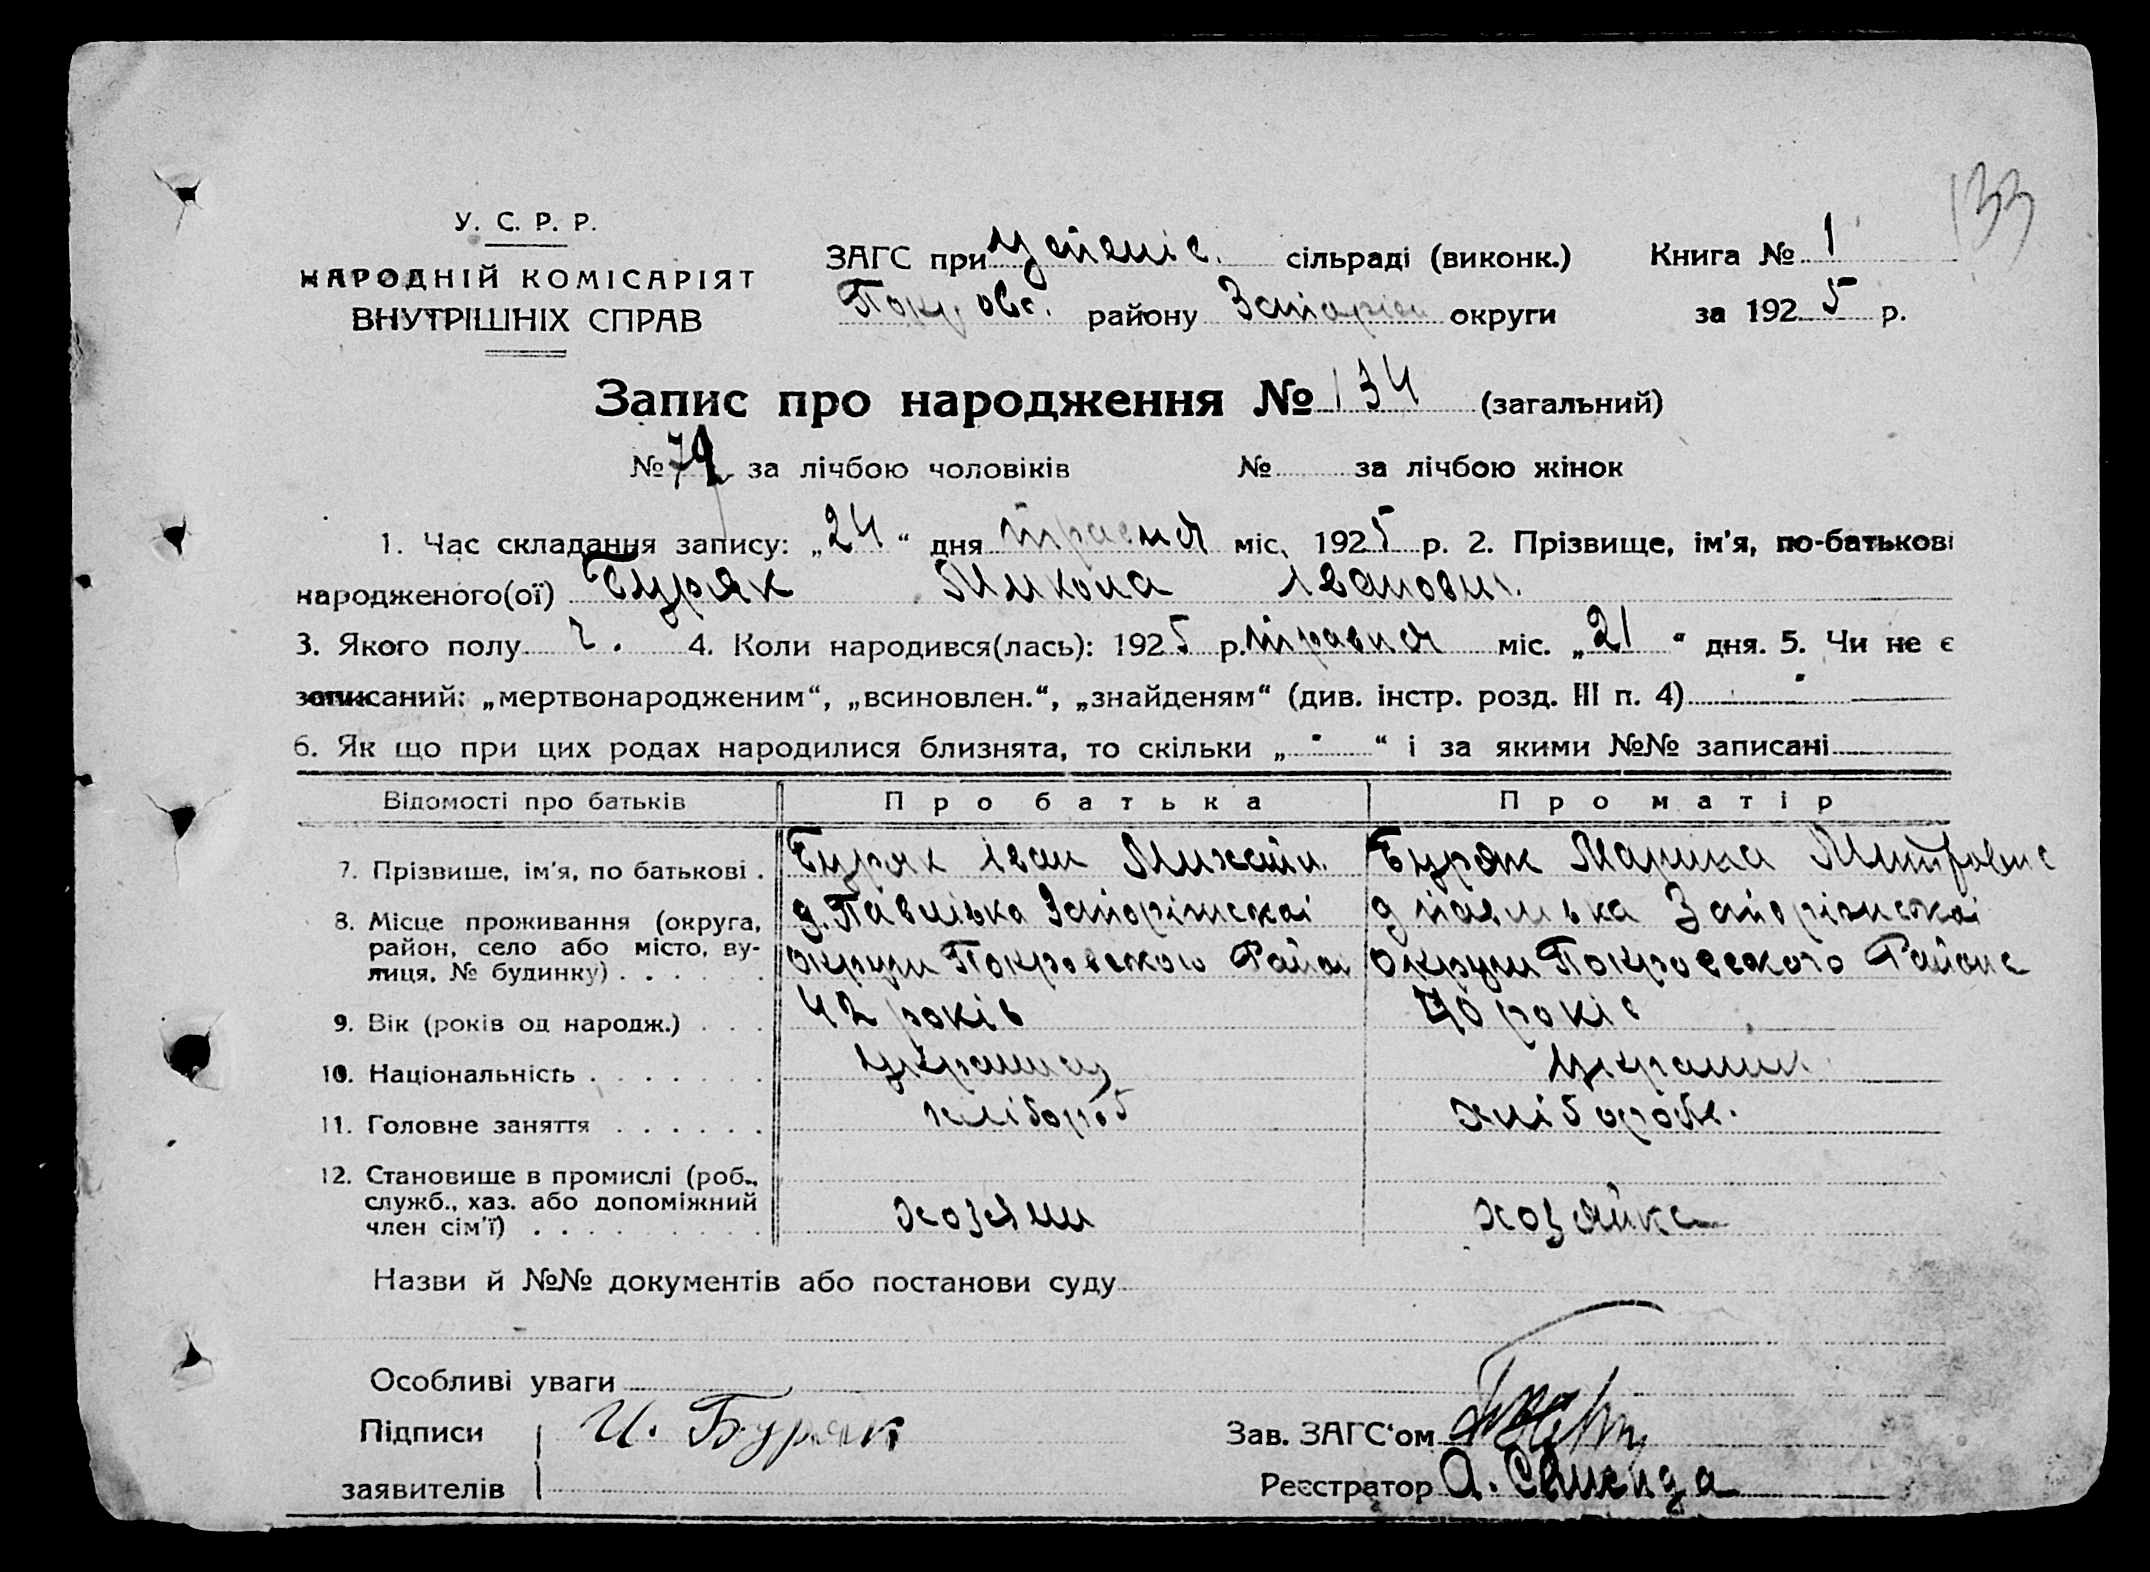 133
У. С. Р. Р.
НАРОДНІЙ КОМІСАРІЯТ
ВНУТРІШНІХ СПРАВ
ЗАГС при Успеніс. сільраді (виконк.) Книга № 1
Покровс. району Запоріж округи за 1925 р.
Запис про народження № 134 (загальний)
№ 79 за лічбою чоловіків № за лічбою жінок
1. Час складання запису: „24“ дня травня міс. 1925 р. 2. Прізвище, ім'я, по-батькові
народженого(ої) Буряк Микола Іванович.
3. Якого полу ч. 4. Коли народився(лась): 1925 р. травня міс. „21“ дня. 5. Чи не є
записаний: „мертвонародженим“, „всиновлен.“, „знайденям“ (див. інстр. розд. III п. 4)
6. Як що при цих родах народилися близнята, то скільки „ “ і за якими №№ записані
Відомості про батьків Про батька Про матір
7. Прізвише, ім'я, по батькові . Буряк Іван Михайл. Буряк Марина Митровис
8. Місце проживання (округа, район, село або місто, вулиця, № будинку) . . . . . . д. Павлівка Запоріжскоі округи Покровского Район д Павлівка Запоріжскоі округи Покровского Района
9. Вік (років од народж.) . . . 42 років 40 років
10. Національність . . . . . . . Украинец Украинк.
11. Головне заняття . . . . . . хлібороб хлібороб.
12. Становище в промислі (роб., служб., хаз. або допоміжний член сім'ї) . . . . . . . . . хозяин хозяйка
Назви й №№ документів або постанови суду
Особливі уваги
Підписи И. Буряк Зав. ЗАГС'ом
заявителів Реєстратор А.